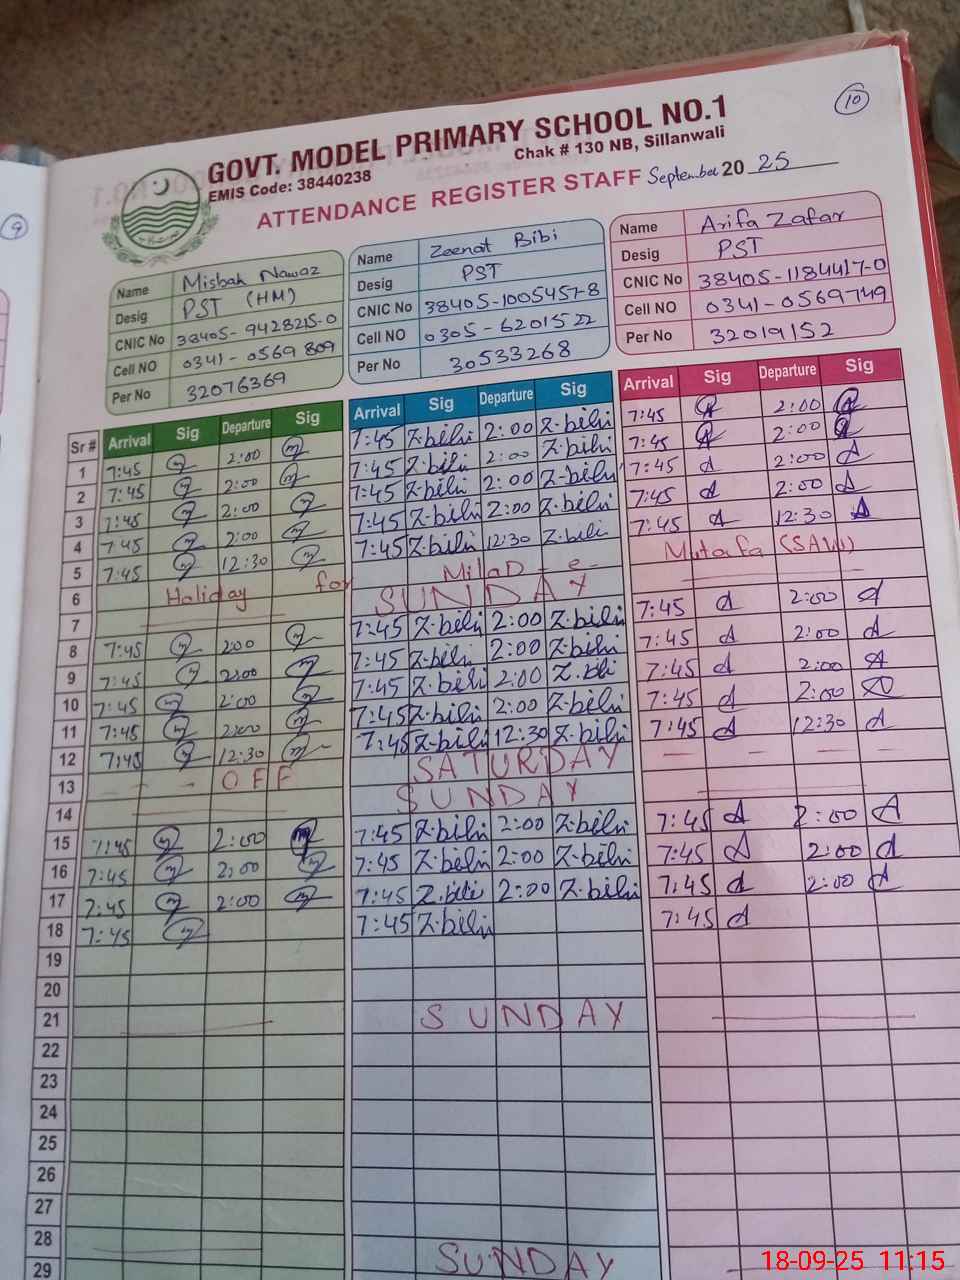 10
9
GOVT. MODEL PRIMARY SCHOOL NO.1
EMIS Code: 38440238 Chak # 130 NB, Sillanwali
ATTENDANCE REGISTER STAFF September 2025
Name Misbah Nawaz Name Zeenat Bibi Name Arifa Zafar
Desig PST (HM) Desig PST Desig PST
CNIC No 38405-9428215-0 CNIC No 38405-1005457-8 CNIC No 38405-1184417-0
Cell NO 0341-0569809 Cell NO 0305-6201522 Cell NO 0341-0569749
Per No 32076369 Per No 30533268 Per No 32019152
Sr # Arrival Sig Departure Sig Arrival Sig Departure Sig Arrival Sig Departure Sig
1 7:45 2:00 7:45 Z.bibi 2:00 Z.bibi 7:45 2:00
2 7:45 2:00 7:45 Z.bibi 2:00 Z.bibi 7:45 2:00
3 7:45 2:00 7:45 Z.bibi 2:00 Z.bibi 7:45 2:00
4 7:45 2:00 7:45 Z.bibi 2:00 Z.bibi 7:45 2:00
5 7:45 12:30 7:45 Z.bibi 12:30 Z.bibi 7:45 12:30
6 Holiday for MilaD-e- Mutafa (SAW)
7 SUNDAY
8 7:45 2:00 7:45 Z.bibi 2:00 Z.bibi 7:45 2:00
9 7:45 2:00 7:45 Z.bibi 2:00 Z.bibi 7:45 2:00
10 7:45 2:00 7:45 Z.bibi 2:00 Z.bibi 7:45 2:00
11 7:45 2:00 7:45 Z.bibi 2:00 Z.bibi 7:45 2:00
12 7:45 12:30 7:45 Z.bibi 12:30 Z.bibi 7:45 12:30
13 OFF SATURDAY
14 SUNDAY
15 7:45 2:00 7:45 Z.bibi 2:00 Z.bibi 7:45 2:00
16 7:45 2:00 7:45 Z.bibi 2:00 Z.bibi 7:45 2:00
17 7:45 2:00 7:45 Z.bibi 2:00 Z.bibi 7:45 2:00
18 7:45 7:45 Z.bibi 7:45
19
20
21 SUNDAY
22
23
24
25
26
27
28 SUNDAY
29
18-09-25 11:15